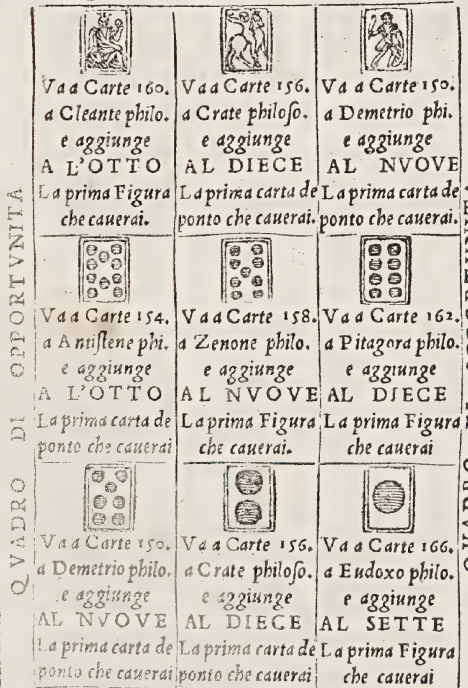 QVADRO DI OPPORTVNITA
Va a Carte 160.
a Cleante philo.
e aggiunge
A L'OTTO
La prima Figura
che cauerai.
Va a Carte 156.
a Crate philoſo.
e aggiunge
AL DIECE
La prima carta de
ponto che cauerai.
Va a Carte 150.
a Demetrio phi.
e aggiunge
AL NVOVE
La prima carta de
ponto che cauerai.
Va a Carte 154.
a Antiſtene phi.
e aggiunge
A L'OTTO
La prima carta de
ponto che cauerai
Va a Carte 158.
a Zenone philo.
e aggiunge
AL NVOVE
La prima Figura
che cauerai.
Va a Carte 162.
a Pitagora philo.
e aggiunge
AL DIECE
La prima Figura
che cauerai
Va a Carte 150.
a Demetrio philo.
e aggiunge
AL NVOVE
La prima carta de
ponto che cauerai
Va a Carte 156.
a Crate philoſo.
e aggiunge
AL DIECE
La prima carta de
ponto che cauerai
Va a Carte 166.
a Eudoxo philo.
e aggiunge
AL SETTE
La prima Figura
che cauerai